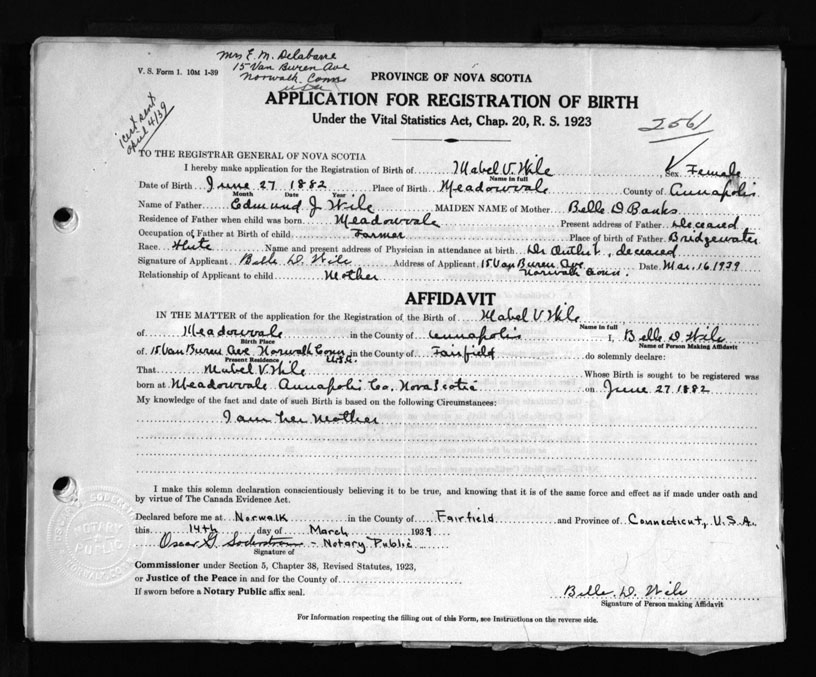 Mrs E. M. Delabarre
15 Van Buren Ave
Norwalk. Conn
USA
V. S. Form 1. 10M 1-39
PROVINCE OF NOVA SCOTIA
APPLICATION FOR REGISTRATION OF BIRTH
Under the Vital Statistics Act, Chap. 20, R. S. 1923
2561
sent
April 4/39
TO THE REGISTRAR GENERAL OF NOVA SCOTIA
I hereby make application for the Registration of Birth of Mabel V. Wile Sex Female
Name in full
Date of Birth June 27 1882 Place of Birth Meadowvale County of Annapolis
Month Date Year
Name of Father Edmund J Wile MAIDEN NAME of Mother Belle D Banks
Residence of Father when child was born Meadowvale Present address of Father Deceased
Occupation of Father at Birth of child Farmer Place of birth of Father Bridgewater
Race Name and present address of Physician in attendance at birth Dr , deceased
Signature of Applicant Belle D. Wile Address of Applicant 15 Van Buren Ave Date Mar. 16 1939
Norwalk Conn.
Relationship of Applicant to child Mother
AFFIDAVIT
IN THE MATTER of the application for the Registration of the Birth of Mabel V Wile
Name in full
of Meadowvale in the County of Annapolis I, Belle D Wile
Birth Place Name of Person Making Affidavit
of 15 Van Buren Ave Norwalk Conn in the County of Fairfield do solemnly declare:
Present Residence U.S.A.
That Mabel V. Wile Whose Birth is sought to be registered was
born at Meadowvale Annapolis Co. Nova Scotia on June 27 1882
My knowledge of the fact and date of such Birth is based on the following Circumstances:
I am her Mother
I make this solemn declaration conscientiously believing it to be true, and knowing that it is of the same force and effect as if made under oath and
by virtue of The Canada Evidence Act.
Declared before me at Norwalk in the County of Fairfield and Province of Connecticut, U.S.A.
this 14th day of March 1939
Oscar G. Soderstrom - Notary Public
Signature of
Commissioner under Section 5, Chapter 38, Revised Statutes, 1923,
or Justice of the Peace in and for the County of
If sworn before a Notary Public affix seal.
Belle D. Wile
Signature of Person making Affidavit
For Information respecting the filling out of this Form, see Instructions on the reverse side.
NOTARY
PUBLIC